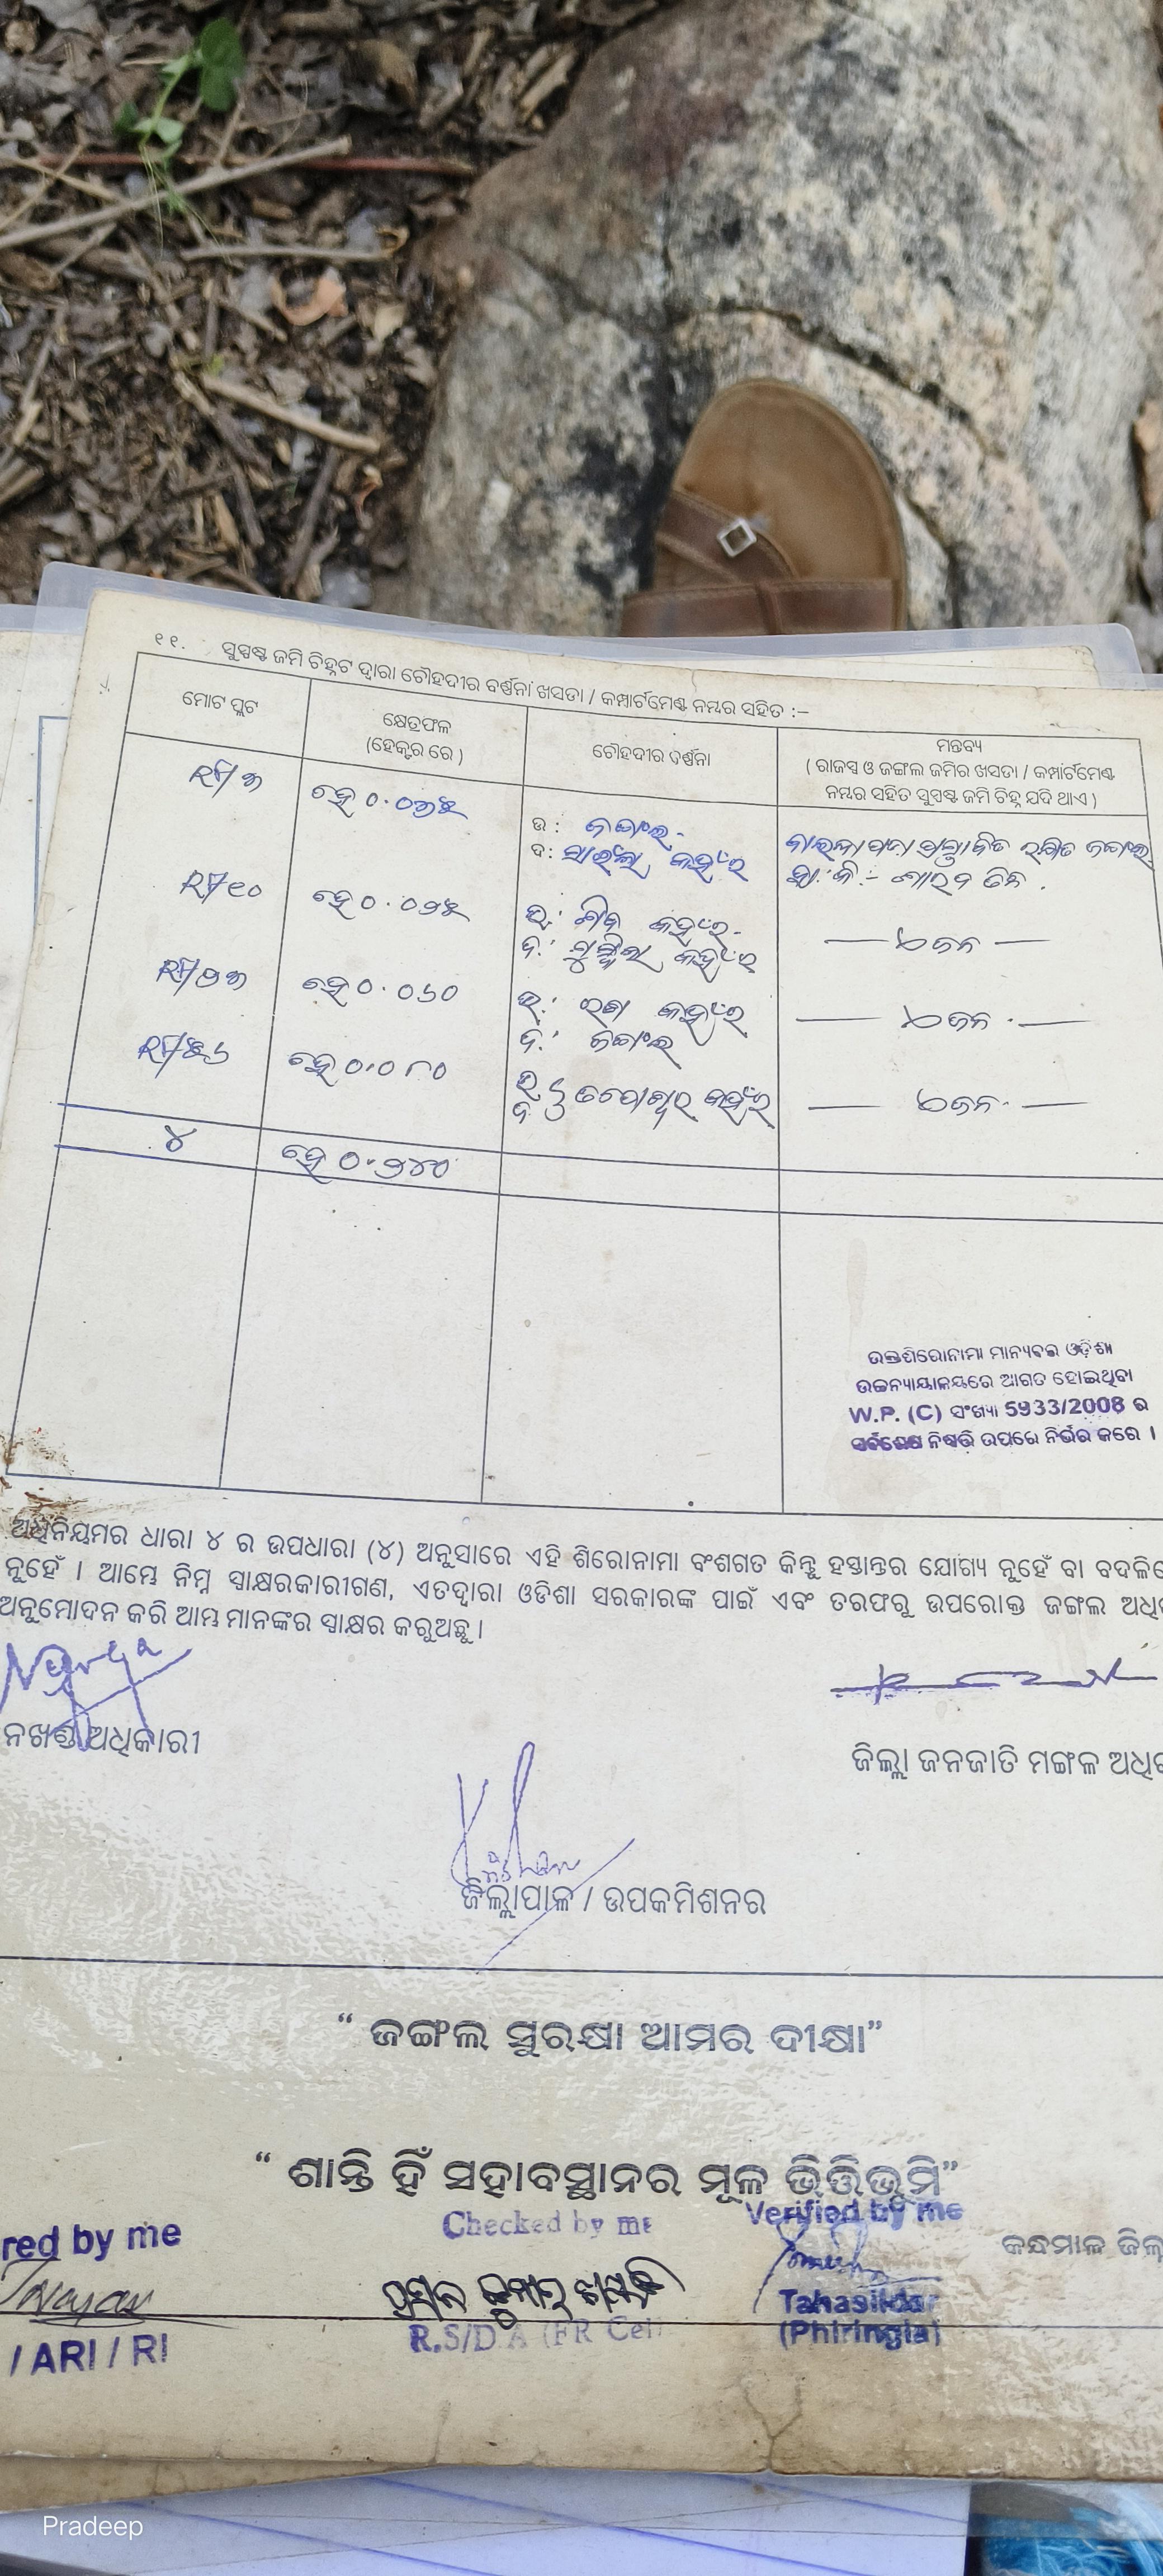 ୧୧. ସୁସ୍ପଷ୍ଟ ଜମି ଚିହ୍ନଟ ଦ୍ୱାରା ଚୌହଦୀର ବର୍ଣ୍ଣନା ଖସଡା / କମ୍ପାର୍ଟମେଣ୍ଟ ନମ୍ବର ସହିତ :–
ମୋଟ ପ୍ଲଟ
କ୍ଷେତ୍ରଫଳ
(ହେକ୍ଟର ରେ)
ଚୌହଦୀର ବର୍ଣ୍ଣନା
ମନ୍ତବ୍ୟ
( ରାଜସ୍ୱ ଓ ଜଙ୍ଗଲ ଜମିର ଖସଡା / କମ୍ପାର୍ଟମେଣ୍ଟ
ନମ୍ବର ସହିତ ସୁସ୍ପଷ୍ଟ ଜମି ଚିହ୍ନ ଯଦି ଥାଏ )
RF/୩ ହେ ୦.୦୭୫
ଉ : ଜଙ୍ଗଲ
ଦ: କହଁର
ପ୍ରସ୍ତାବିତ ଜଙ୍ଗଲ
RF/୧୦ ହେ ୦.୦୨୫
ଉ: ଶିବ କହଁର
ଦ: କହଁର
— ଐଜନ —
RF/୭୩ ହେ ୦.୦୬୦
ଉ: କହଁର
ଦ: ଜଙ୍ଗଲ
— ଐଜନ —
RF/୫୬ ହେ ୦.୦୮୦
ଉ
ଦ କହଁର
— ଐଜନ —
୪ ହେ ୦.୨୪୦
ଉକ୍ତ ଶିରୋନାମା ମାନ୍ୟବର ଓଡ଼ିଶା
ଉଚ୍ଚନ୍ୟାୟାଳୟରେ ଆଗତ ହୋଇଥିବା
W.P. (C) ସଂଖ୍ୟା 5933/2008 ର
ସର୍ବଶେଷ ନିଷ୍ପତ୍ତି ଉପରେ ନିର୍ଭର କରେ ।
ଅଧିନିୟମର ଧାରା ୪ ର ଉପଧାରା (୪) ଅନୁସାରେ ଏହି ଶିରୋନାମା ବଂଶଗତ କିନ୍ତୁ ହସ୍ତାନ୍ତର ଯୋଗ୍ୟ ନୁହେଁ ବା ବଦଳି
ନୁହେଁ । ଆମ୍ଭେ ନିମ୍ନ ସ୍ୱାକ୍ଷରକାରୀଗଣ, ଏତଦ୍ୱାରା ଓଡିଶା ସରକାରଙ୍କ ପାଇଁ ଏବଂ ତରଫରୁ ଉପରୋକ୍ତ ଜଙ୍ଗଲ ଅଧି
ଅନୁମୋଦନ କରି ଆମ୍ଭ ମାନଙ୍କର ସ୍ୱାକ୍ଷର କରୁଅଛୁ ।
ନଖଣ୍ଡ ଅଧିକାରୀ
ଜିଲ୍ଲା ଜନଜାତି ମଙ୍ଗଳ ଅଧି
ଜିଲ୍ଲାପାଳ / ଉପକମିଶନର
“ ଜଙ୍ଗଲ ସୁରକ୍ଷା ଆମର ଦୀକ୍ଷା”
“ ଶାନ୍ତି ହିଁ ସହାବସ୍ଥାନର ମୂଳ ଭିତ୍ତିଭୂମି”
red by me
Checked by me
Verified by me
କନ୍ଧମାଳ ଜିଲ୍
/ ARI / RI
R.S/D A (FR Cell)
Tahasildar
(Phiringia)
Pradeep